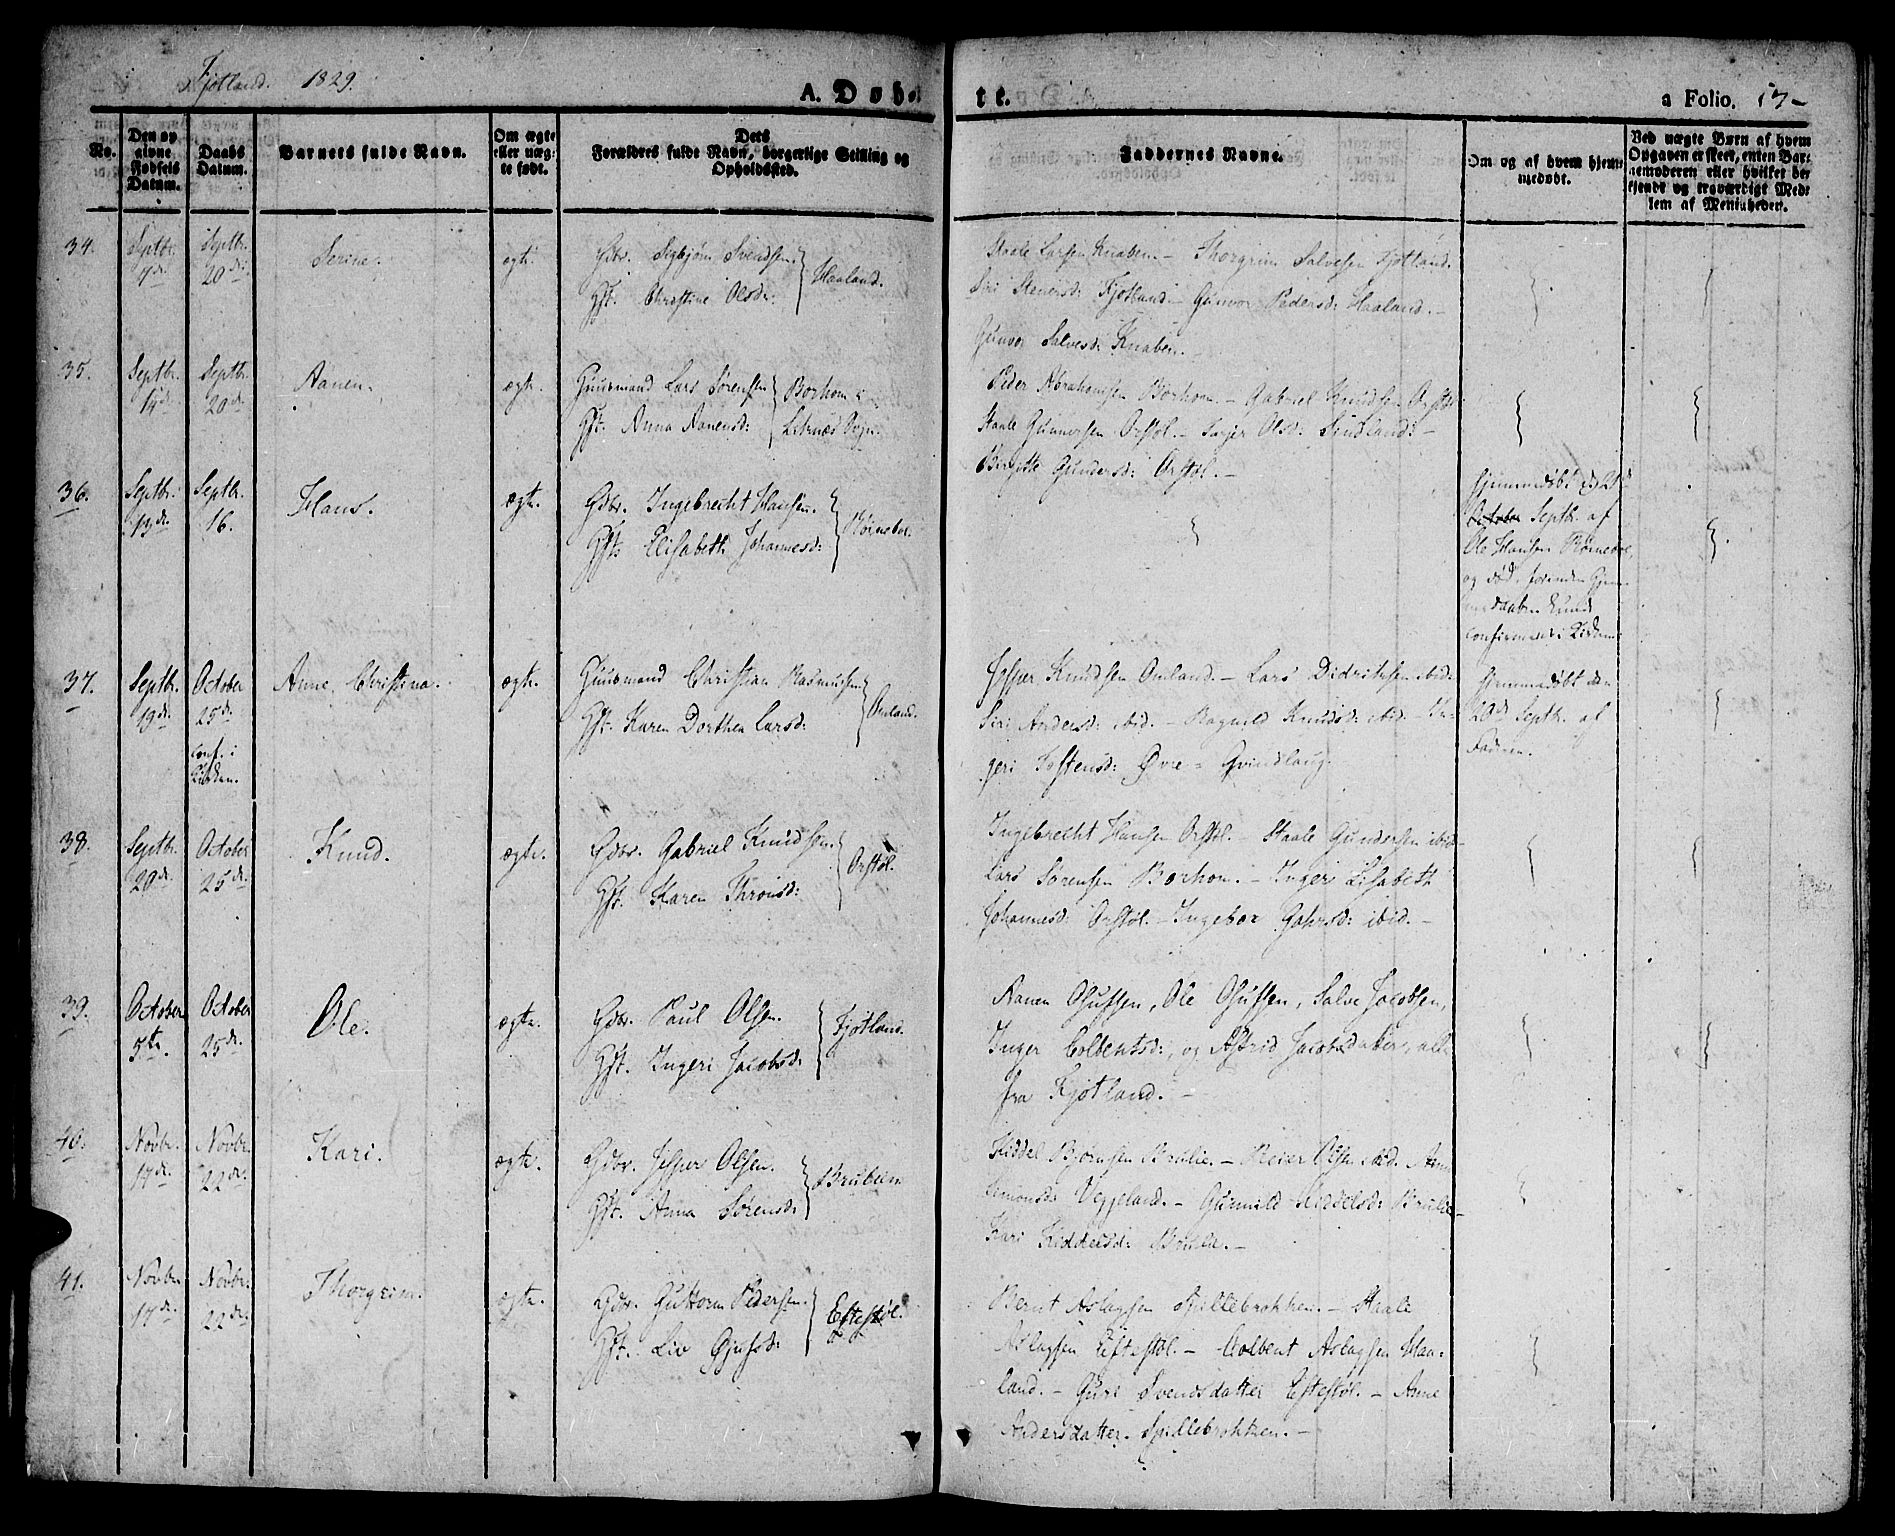 Fjotland. 1829.
A. Døbte.
a Folio. 17
No.
Den opgivne Fødsels Datum.
Daabs Datum.
Barnets fulde Navn.
Om ægte eller uægte født.
Dets Forældres fulde Navn, borgerlige Stilling og Opholdssted.
Faddernes Navne.
Om og af hvem hjemmedøbt.
Ved uægte Børn af hvem Opgaven er skeet, enten Barnemoderen eller hvilket bekjendt og troværdigt Medlem af Menigheden.
34. Septbr. 7de Septbr. 20de Serine. ægte. Gdbr. Sigbjørn Svendsen. Hst. Christine Olsdr. } Haaland.
Staale Larsen Knaben. - Thorgrim Salvesen Fjotland.
Siri Stenersd: Fjotland - Gunvor Pedersd: Haaland. -
Gunvor Salvesd: Knaben. -
35. Septbr. 14de Septbr. 20de Aanen. ægte. Huusmand Lars Sørensen Hst. Anna Aanensd: } Borhom i Sogn.
Peder Abrahamsen Borhom. - Gabriel Knudsen Orstøl
Staale Gundersen Orstøl. - Olsd:
Birgitte Gundersd: Orstøl. -
36. Septbr. 13de Septbr. 16. Hans. ægte. Gdbr. Ingebrecht Hansen. Hst. Elisabeth Johannesd: }
Hjemmedøbt d
October Septbr. af
Ole Hansen
og død, forinden Hjem-
medaaben kunde
confirmeres i Kirken.
37. Septbr. 19de October 25de conf. i Kirken. Anne Christina. ægte. Huusmand Christian Rasmussen Hst. Karen Dorthea Larsd: } Omland.
Jesper Knudsen Omland. - Lars Didriksen ibid:
Siri Andersd: ibid. - Ragnild Knudsd: ibid - In-
geri Øvre = Qvindlaug.
Hjemmedøbt den
20de Septbr. af
Faderen.
38. Septbr. 20de October 25de Knud. ægte. Gdbr. Gabriel Knudsen. Hst. Karen Throndsd: } Orstøl.
Ingebrecht Hansen Orstøl. Staale Gundersen ibid -
Lars Sørensen Borhom. - Ingeri Lisabeth
Johannesd: Orstøl. - Ingebor Gabrsd: ibid. -
39. October 5te October 25de Ole. ægte. Gdbr. Paul Olsen. Hst. Ingeri Jacobsd: } Fjotland.
Aanen Ole Salve Jacobsen,
Inger Colbentsd:, og Astrid Jacobsdatter, alle
fra Fjotland. -
40. Novbr. 14de Novbr. 22de Kari. ægte. Gdbr. Jesper Olsen. Hst. Anna Sørensd: }
Kiddel Bjørnsen Brulie. - Reier Olsen ibid. Anna
Simonsd: Veggeland. - Gunnild Kiddelsd: Brulie -
Kari Kiddelsd: Brulie. -
41. Novbr. 17de Novbr. 22de Thorgrim. ægte. Gdbr. Guttorm Pedersen. Hst. Liv } Eftestøl.
Bernt Aslagsen Spillebrokken. - Staale
Aslagsen Eftestøl. - Colbent Aslagsen Haa-
land. - Guri Svendsdatter Eftestøl. - Anne
Andersdatter Spillebrokken. -